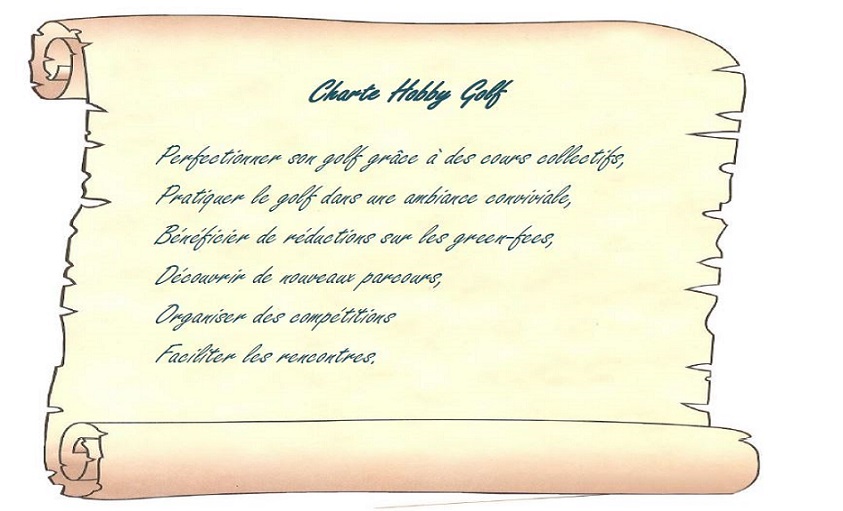 Charte Hobby Golf
Perfectionner son golf grâce à des cours collectifs,
Pratiquer le golf dans une ambiance conviviale,
Bénéficier de réductions sur les green-fees,
Découvrir de nouveaux parcours,
Organiser des compétitions
Faciliter les rencontres.